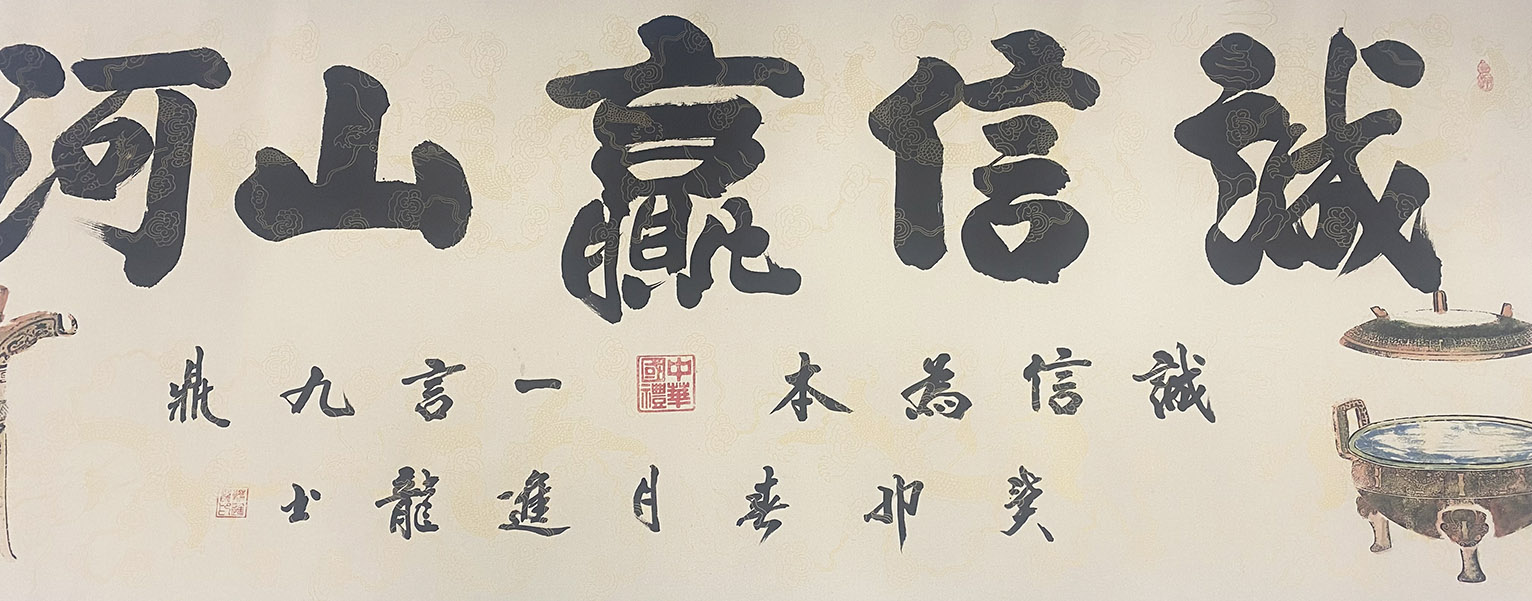 誠信贏山河
誠信為本
中華
國禮
一言九鼎
癸卯春月進龍书